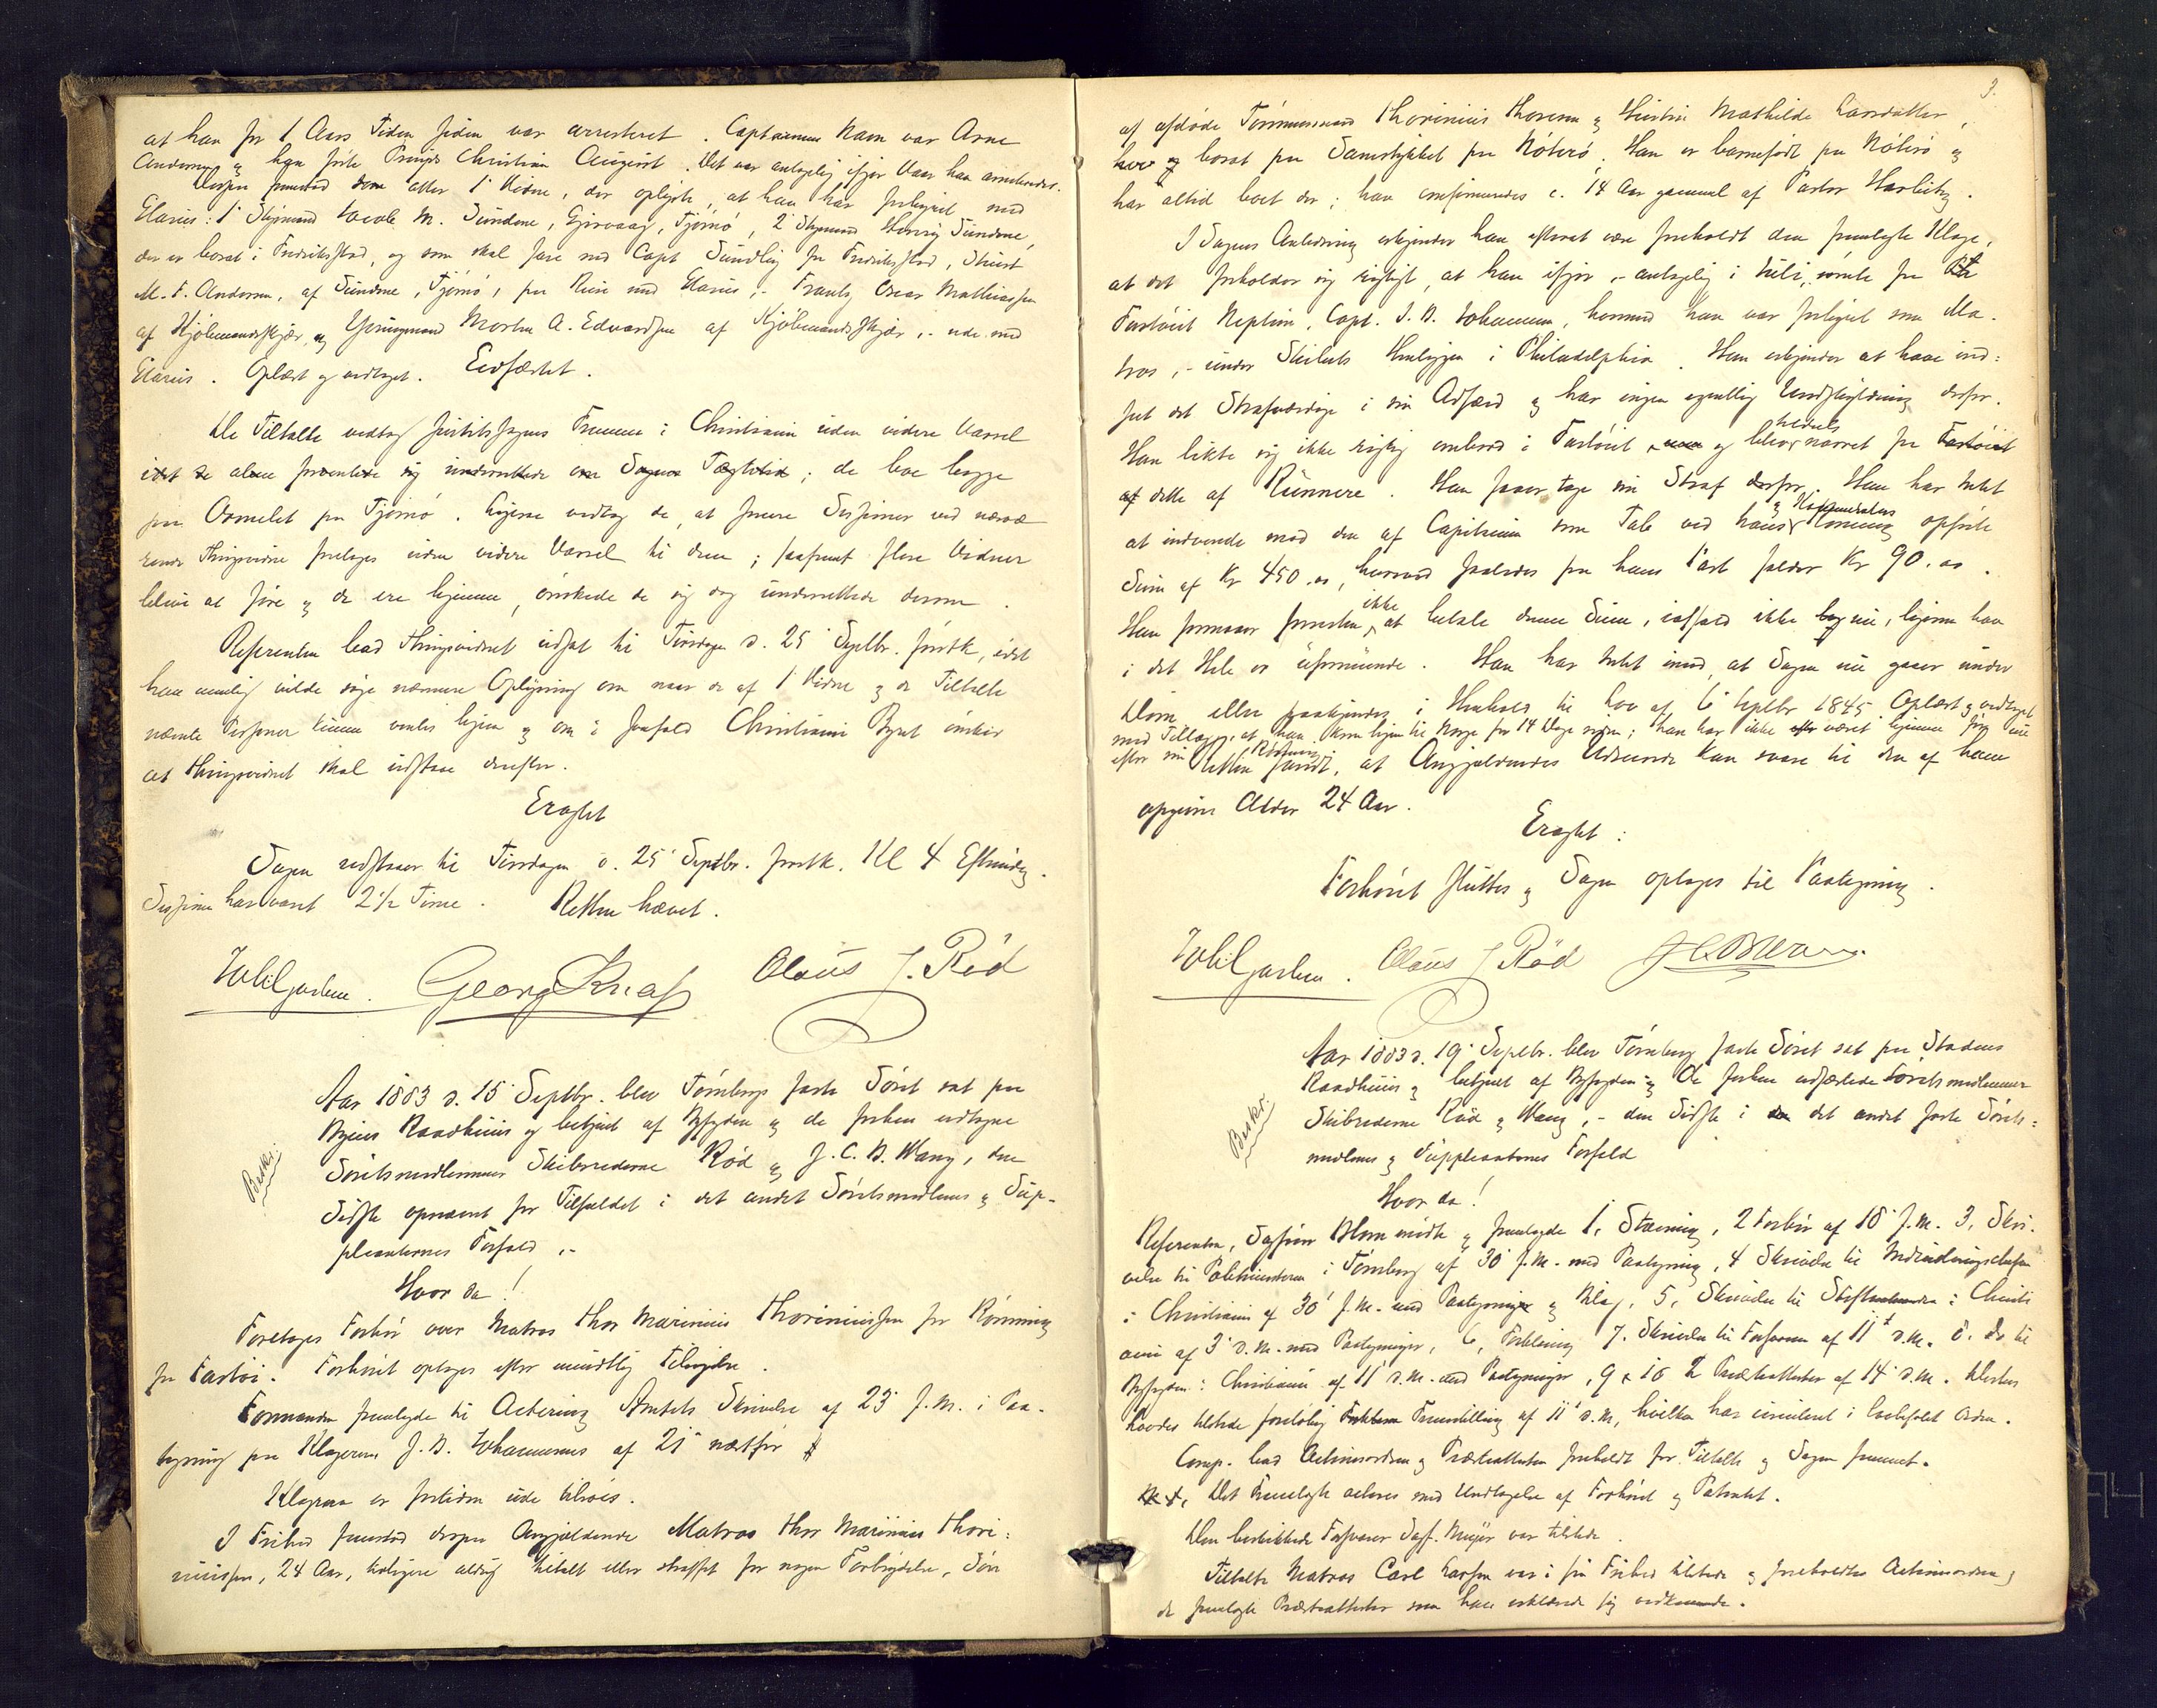 at han for 1 Aars Tiden siden var arresteret. Captainens Navn var Arne
Andersen og han førte Prinds Christian August. Det var antagelig ifjor Vaar han arresteredes.
Derpaa fremstod som atter 1' Vidne, der oplyste, at han har forhyret med
Elarius: 1' Styrmand Jacob M. Sundene, Gjervaag, Tjømø, 2' Styrmand Sundene,
der er bosat i Fredrikstad, og som skal fare med Capt Sundby fra Fredrikstad, Stuert
M. F. Andersen, af Sundene, Tjømø, paa Reise med Elarius, - Frantz Oscar Mathiassen
af Kjøbmandskjær, og Yungmand Morten A. Edvardsen af Kjøbmandskjær, - ude med
Elarius. Oplæst og vedtaget. Eedfæstet.
De Tiltalte vedtog Justitssagens Fremme i Christiania uden videre Varsel
idet de alene forventede sig underrettede om Sagens Tægtetid; de bor begge
paa Ormelet paa Tjømø. Ligesaa vedtog de, at senere Sessioner ved nærvæ
rende Thingsvidne foretages uden videre Varsel til dem; saafremt flere Vidner
bleve at føre og de ere hjemme, ønskede de sig dog underrettede derom.
Referenten bad Thingsvidnet udsat til Tirsdagen d. 25' Septbr. førstk, idet
han nemlig vilde søge nærmere Oplysning om naar de af 1' Vidne og de Tiltalte
nævnte Personer kunne ventes hjem og om i saafald Christiania Byret ønsker
at Thingsvidnet skal udstaae derefter.
Eragtet
Sagen udstaaer til Tirsdagen d. 25' Septbr. førstk. Kl 4 Eftmidg.
Sessionen har varet 2½ Time. Retten hævet.
Georg Knap Olaus J. Rød
Aar 1883 d. 15' Septbr. blev Tønsbergs faste Søret sat paa
Byens Raadhuus og betjent af Byfogden og de forhen udtagne
Søretsmedlemmer Skibsrederne Rød og J. C. B. Wang, den
Sidste opnævnt for Tilfældet i det andet Søretsmedlems og Sup-
pleanternes Forfald, -
Beskr.
Hvor da!
Foretoges Forhør over Matros Thor Marinius Thoriniussen for Rømning
fra Fartøi. Forhøret optages efter mundtlig Tilsigelse.
Formanden fremlagde til Actering Amtets Skrivelse af 23' f. M. i Paa-
tegning paa Klageren J. B. Johannesens af 21' næstfør
Klageren er fortiden ude tilsøes.
I Frihed fremstod derpaa Angjældende Matros Thor Marinius Thori-
niussen, 24 Aar, tidligere aldrig tiltalt eller straffet for nogen Forbrydelse, Søn
3.
af afdøde Tømmermand Thorinius Thoresen og Hustru Mathilde Larsdatter,
bosat paa Samstykket paa Nøterø. Han er barnefødt paa Nøterø og
har altid boet der; han confirmeredes c. 14 Aar gammel af Pastor Harbitz.
I Sagens Anledning erkjender han efterat være foreholdt den fremlagte Klage,
at det forholder sig rigtigt, at han ifjor, - antagelig i Juli, rømte fra
Fartøiet Neptun, Capt. J. B. Johannesen, hvormed han var forhyret som Ma-
tros, - under Skibets Henliggen i Philadelphia. Han erkjender at have ind-
seet det Strafværdige i sin Adfærd og har ingen egentlig Undskyldning derfor.
Han likte sig ikke rigtig ombord i Fartøiet og blev tildels narret fra Fartøiet
af dette af Runnere. Han faaer tage sin Straf derfor. Han har Intet
at indvende mod den af Capitainen som Tab ved hans og Kammeraters Rømning opførte
Sum af Kr 450.00, hvoraf saaledes paa hans Part falder Kr 90.00.
Han formaaer forresten ikke at betale denne Sum, ialfald ikke nu, ligesom han
i det Hele er uformuende. Han har Intet imod, at Sagen nu gaaer under
Dom eller paakjendes i Henhold til Lov af 6 Septbr 1845 Oplæst og vedtaget
med Tillæg, at han kom hjem til Norge for 14 Dage siden; han har ikke været hjemme før nu
efter sin Rømning.
Retten fandt, at Angjældendes Udseende kan svare til den af ham
opgivne Alder 24 Aar.
Eragtet:
Forhøret sluttes og Sagen optages til Paategning.
Olaus J Rød
Aar 1883 d. 19' Septbr. blev Tønsberg faste Søret sat paa Stadens
Raadhuus og betjent af Byfogden og de forhen udfærdede Søretsmedlemmer
Skibsrederne Rød og Wang, - den Sidste i det andet faste Sørets-
medlems og Suppleanternes Forfald
Beskr.
Hvor da!
Referenten, Sagfører Blom mødte og fremlagde 1, Stævning, 2 Forhør af 18' f. M. 3, Skri-
velse til Politimesteren i Tønsberg af 30' f. M. med Paategning, 4 Skrivelse til Indrulleringschefen
i Christiania af 30' f. M. med Paategninger og Bilag, 5, Skrivelse til i Christi
ania af 3' d. M. med Paategninger, 6, Forklaring 7. Skrivelse til Forsvareren af 11' d. M. 8. Do til
Byfogden i Christiania af 11' d. M. med Paategninger, 9 & 10 2 Præsteattester af 14' d. M. Derhos
havdes tilstede foreløbig Fremstilling af 11' d. M., hvilken har circuleret i lovbefalet Orden.
Comp. bad Actionsordren og Præsteattesten foreholdt for Tiltalte og Sagen fremmet.
Det Fremlagte acteres med Undtagelse af Forhøret og Patentet.
Den beskikkede Forsvarer Sagf. Meyer var tilstede
Tiltalte Matros Carl Larsen var i fri Frihed tilstede og foreholdtes Actionsordren og
de fremlagte Præsteattester som han erklærede sig vedkommende.